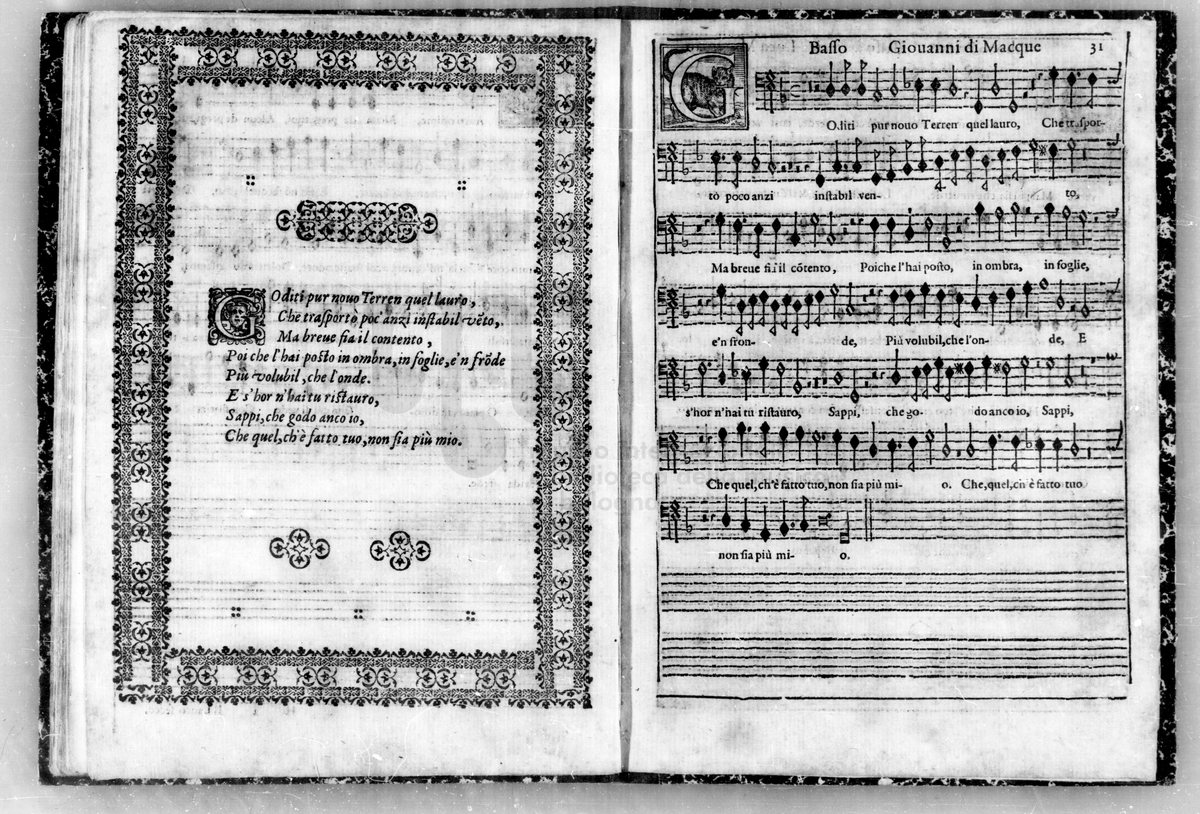 COditi pur nouo Terren quel lauro,
Che traſportò poc'anzi inſtabil vẽto,
Ma breue ſia il contento,
Poi che l'hai poſto in ombra, in foglie, e'n frõde
Più volubil, che l'onde.
E s'hor n'hai tu riſtauro,
Sappi, che godo anco io,
Che quel, ch'è fatto tuo, non ſia più mio.
Baſſo Giouanni di Macque 31
COditi pur nouo Terren quel lauro, Che traſpor-
tò poco anzi inſtabil ven- to,
Ma breue ſia il cõtento, Poiche l'hai poſto, in ombra, in foglie,
e'n fron- de, Più volubil, che l'on- de, E
s'hor n'hai tu riſtauro, Sappi, che go- do anco io, Sappi,
Che quel, ch'è fatto tuo, non ſia più mi- o. Che, quel, ch'è fatto tuo
non ſia più mi- o.